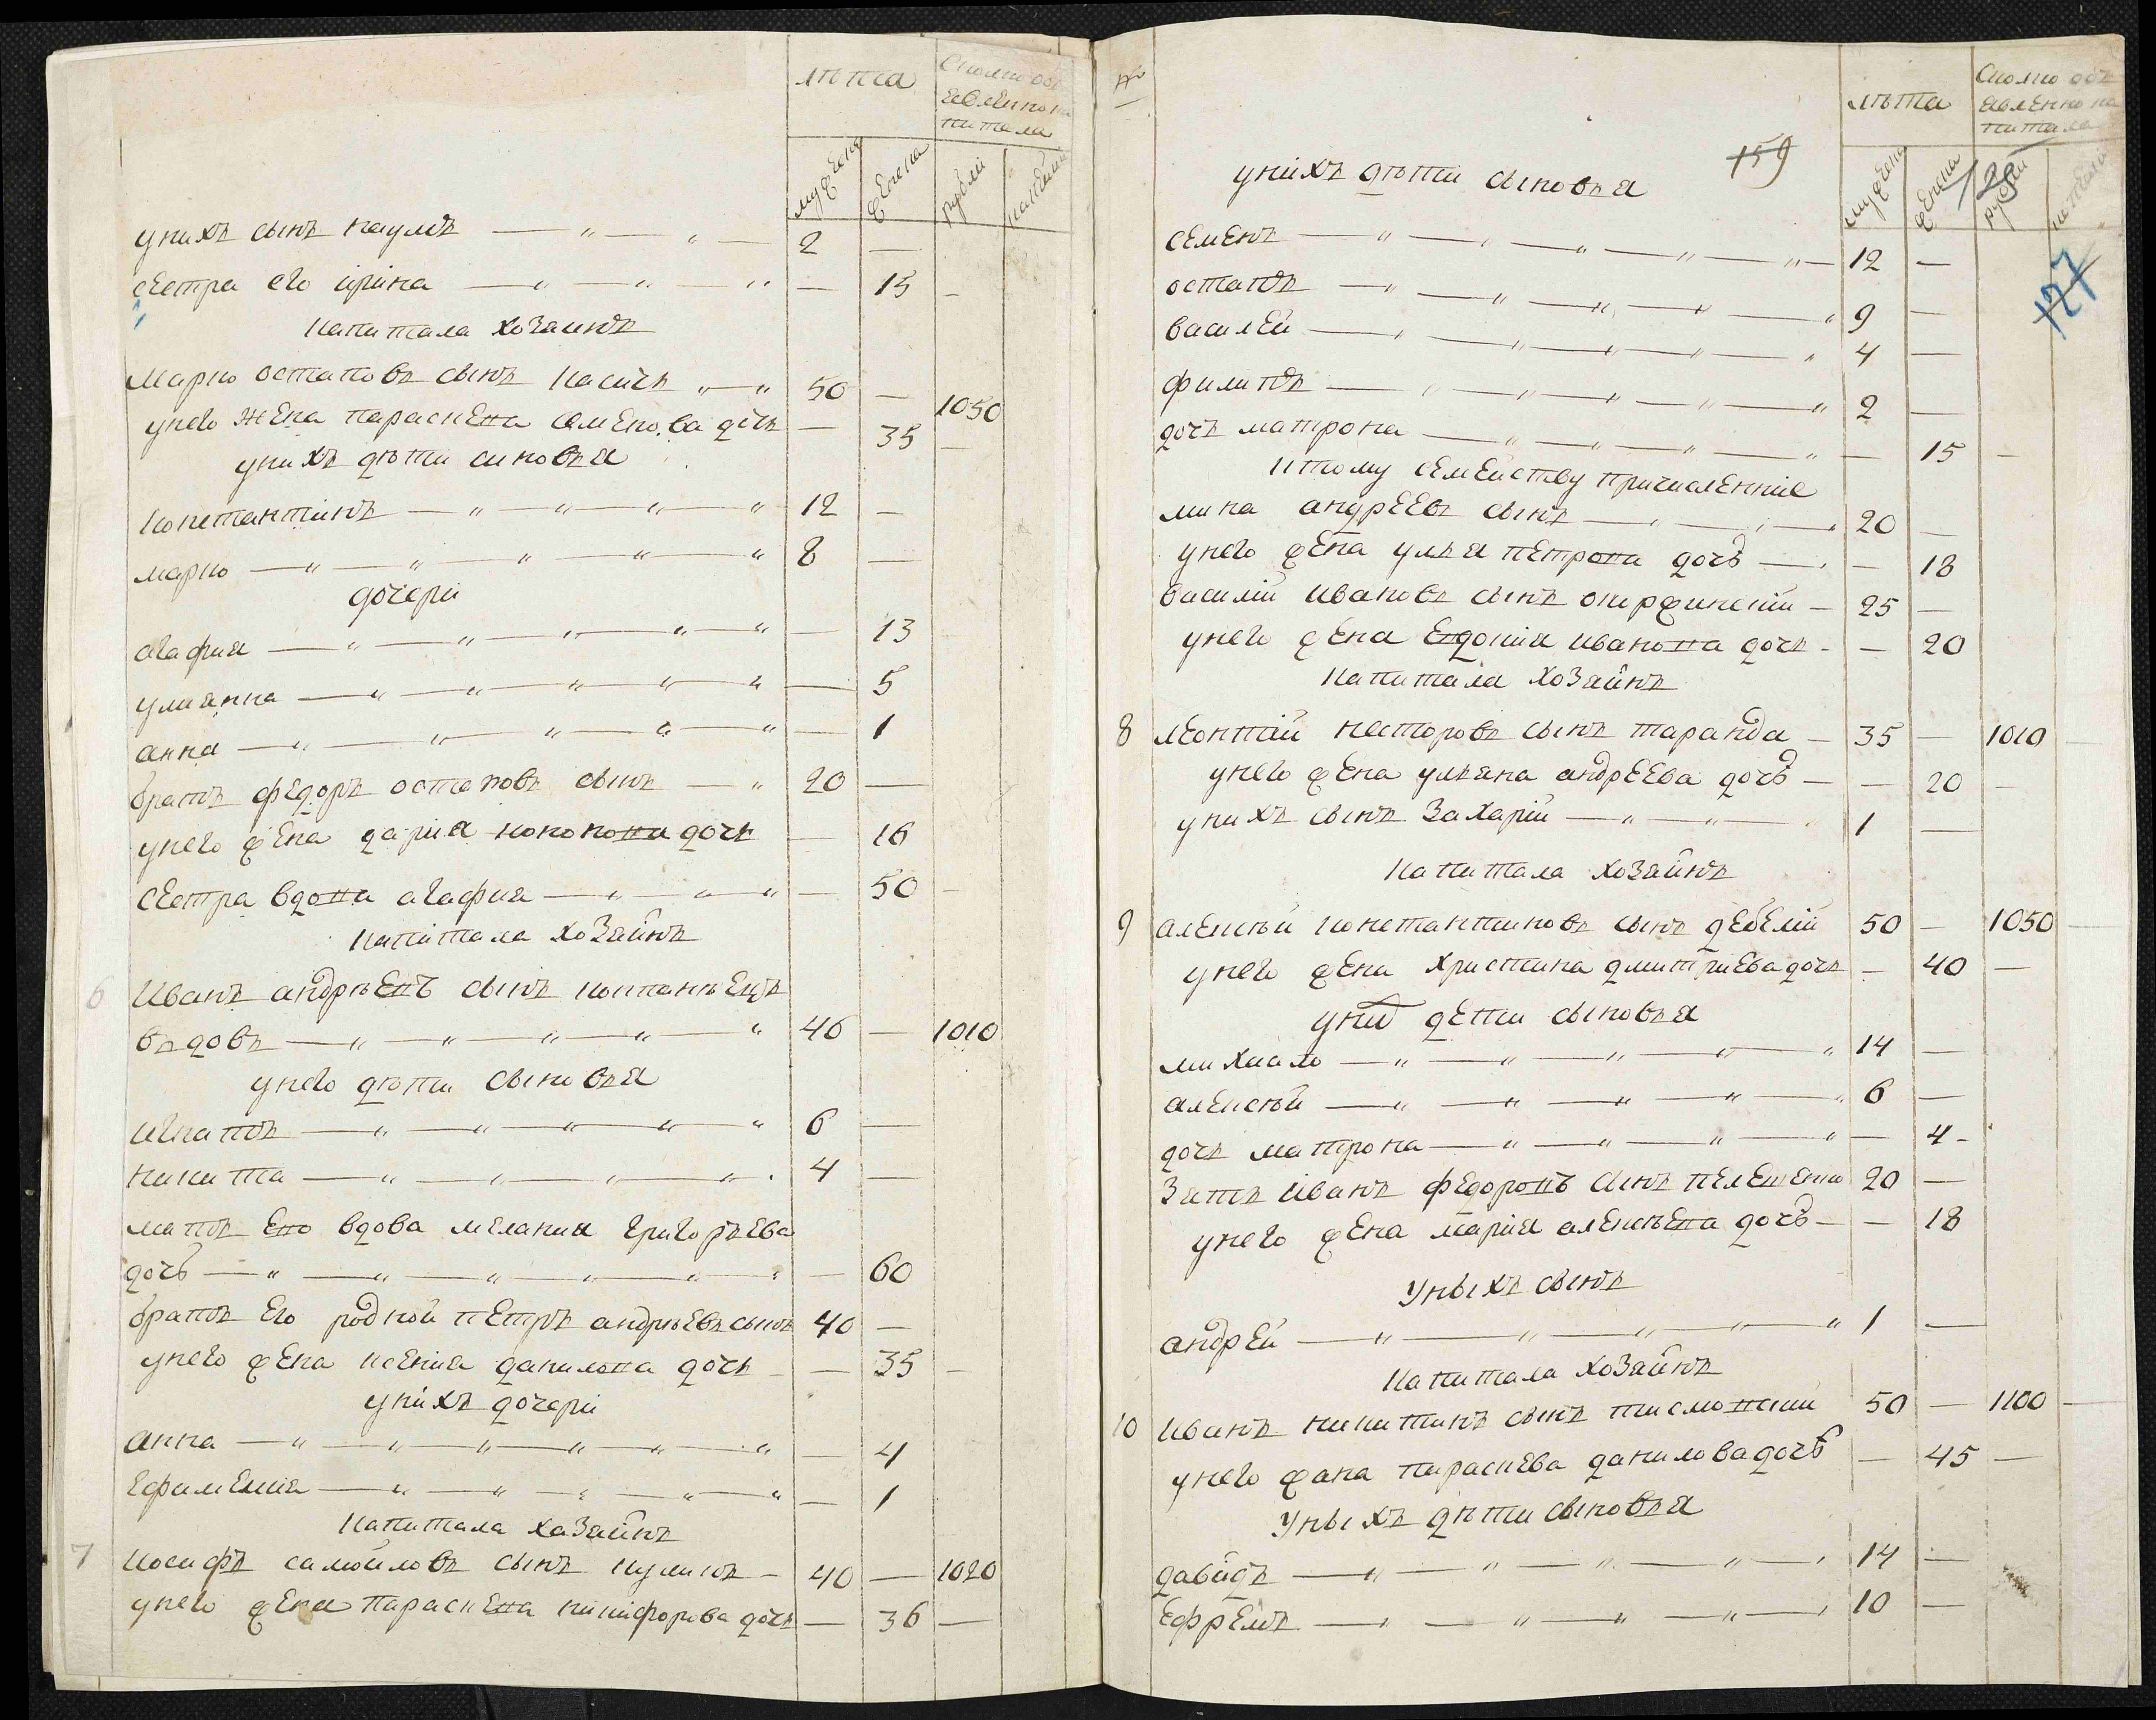 лѣта
Сколко объ
явленно ка
питала
мужеска
женска
рубли
копейки
у них сынъ наумъ — " — " — 2 —
сестра его ірина — " — " — " — 15 —
капитала хозаинъ
марко остаповъ сынъ касичъ " — " 50 — 1050
у него жена параскева семенова дочъ — 35 —
у нихъ дѣти синовья
константинъ — " — " — " — " 12 —
марко — " — " — " — " — " 8 —
дочери
агафия — " — " — " — " — " — 13
улиянна — " — " — " — " — " — 5
анна — " — " — " — " — " — 1
братъ федоръ остаповъ сынъ — " 20 —
у него жена дария кононова дочъ — 16
сестра вдова агафия — " — " — " — 50 —
капитала хозяйнъ
6 Иванъ андрѣевъ сынъ компанѣецъ
вдовъ — " — " — " — " — " 46 — 1010
у него дѣти сыновья
игнатъ — " — " — " — " — " 6 —
никита — " — " — " — " 4 —
матъ его вдова мелания григорьева
дочъ — " — " — " — " — " — " — 60
братъ его родной петръ андрѣевъ сынъ 40 —
у него жена ксения данилова дочъ — 35 —
у нихъ дочери
анна — " — " — " — " — " — " — 4
ефимения — " — " — " — " — " — 1
капитала хазяйнъ
7 иосифъ самойловъ сынъ куликъ — 40 — 1020
у него жена параскева никифорова дочъ — 36 —
№
159
лѣта
Сколко объ
явленно ка
питала
мужеска
женска
рубли
копейки
128
127
у нихъ дѣти сыновья
семенъ — " — " — " — " — " — 12 —
остапъ — " — " — " — " — " 9 —
василей — " — " — " — " — " 4 —
филипъ — " — " — " — " — " 2 —
дочъ матрона — " — " — " — " — 15 —
к тому семейству причисленние
мина андрѣевъ сынъ — " — " — " 20 —
у него жена улья петрова дочъ — " — 18
василий ивановъ сынъ — 25 —
у него жена евдокия иванова дочъ — — 20
капитала хозяйнъ
8 леонтий несторовъ сынъ таранда — 35 — 1010 —
у него жена ульяна андреева дочъ — — 20 —
у нихъ сынъ захарий — " — " — " 1 —
капитала хозяйнъ
9 алексѣй константиновъ сынъ дебелий 50 — 1050 —
у него жена христина дмитриева дочъ — 40 —
у них дети сыновья
михайло — " — " — " — " — " 14 —
алексѣй — " — " — " — " — " 6 —
дочъ матрона — " — " — " — " — 4 —
зять иванъ федоровъ синъ пелешенко 20 —
у него жена мария алексѣева дочъ — — 18
у ныхъ сынъ
андрей — " — " — " — " — " 1 —
капитала хозяйнъ
10 иванъ никитинъ сынъ 50 — 1100 —
у него жана параскева данилова дочъ — 45 —
у ныхъ дѣти сыновья
давидъ — " — " — " — " — " 14 —
ефремъ — " — " — " — " — " 10 —